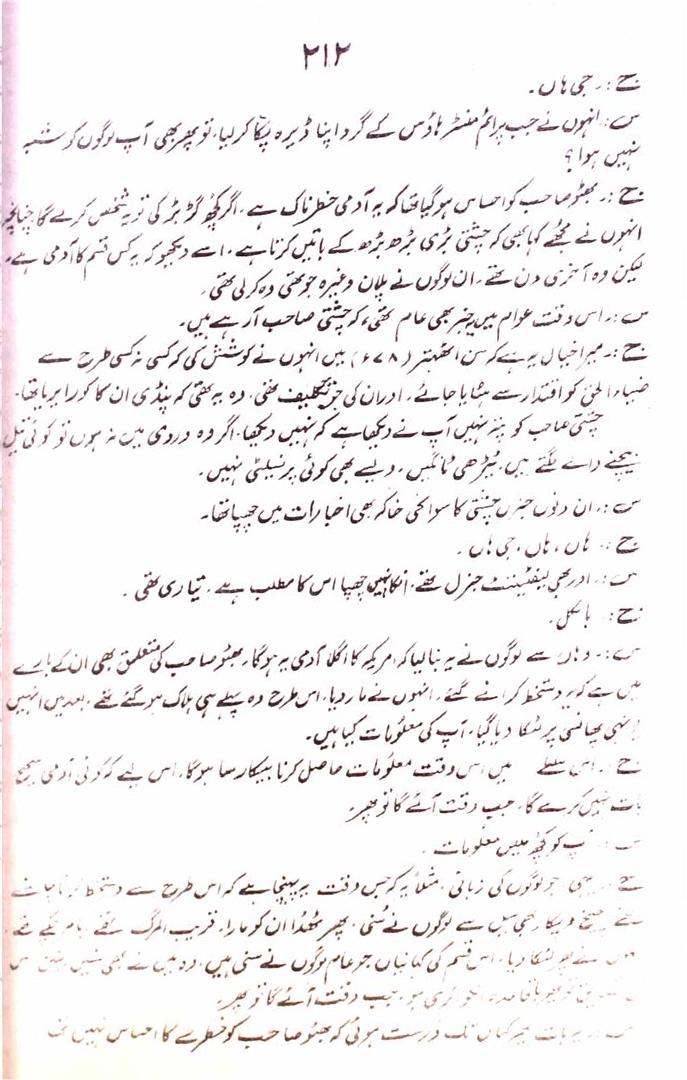 ۲۱۲
ج:۔ جی ہاں۔
س:۔ انہوں نے جب پرائم منسٹر ہاؤس کے گرد اپنا ڈیرہ پکا کر لیا، تو پھر بھی آپ لوگوں کو شبہ
نہیں ہوا؟
ج:۔ بھٹو صاحب کو احساس ہو گیا تھا کہ یہ آدمی خطرناک ہے۔ اگر کچھ گڑ بڑ کی تو یہ شخص کرے گا چنانچہ
انہوں نے مجھے کہا بھی کہ چشتی بڑی بڑھ بڑھ کے باتیں کرتا ہے۔ اسے دیکھو کہ یہ کس قسم کا آدمی ہے۔
لیکن وہ آخری دن تھے۔ ان لوگوں نے پلان وغیرہ جو تھی وہ کر لی تھی۔
س:۔ اس وقت عوام میں خبر بھی عام تھی، کہ چشتی صاحب آ رہے ہیں۔
ج:۔ میرا خیال یہ ہے کہ سن اٹھہتر (۶۷۸) میں انہوں نے کوشش کی کہ کسی نہ کسی طرح سے
ضیاء الحق کو اقتدار سے ہٹایا جائے۔ اور ان کی جو تکلیف تھی، وہ یہ تھی کہ پنڈی ان کا کور ایریا تھا۔
چشتی صاحب کو پتہ نہیں آپ نے دیکھا ہے کہ نہیں دیکھا، اگر وہ وردی میں نہ ہوں تو کوئی تیل
بیچنے والے لگتے ہیں، ٹیڑھی ٹانگیں۔ ویسے بھی کوئی پرسنیلٹی نہیں۔
س:۔ ان دنوں جنرل چشتی کا سوانحی خاکہ بھی اخبارات میں چھپا تھا۔
ج:۔ ہاں، ہاں، جی ہاں۔
س:۔ اور بھی لیفٹیننٹ جنرل تھے، انکا نہیں چھپا اس کا مطلب ہے۔ تیاری تھی۔
ج:۔ بالکل۔
س:۔ وہاں سے لوگوں نے یہ بنا لیا کہ امریکہ کا اگلا آدمی یہ ہو گا۔ بھٹو صاحب کی متعلق بھی ان کے بارے
میں ہے کہ یہ دستخط کرانے گئے۔ انہوں نے مار دیا، اس طرح وہ پہلے ہی ہلاک ہو گئے تھے، بعد میں انہیں
پھانسی پر لٹکا دیا گیا، آپ کی معلومات کیا ہیں۔
ج:۔ اس سلسلے میں اس وقت معلومات حاصل کرنا بیکار سا ہو گا، اس لیے کہ کوئی آدمی صحیح
بات نہیں کرے گا، جب وقت آئے گا تو پھر
س:۔ آپ کو کچھ ملیں معلومات۔
ج:۔ یہی جو لوگوں کی زبانی، مثلاً یہ کہ جس وقت یہ پہنچا ہے کہ اس طرح سے دستخط کرنا چاہتے
تھے چیخ و پکار بھی جیل سے لوگوں نے سنی، پھر ٹھڈا ان کو مارا، قریب المرگ تھے یا مر چکے تھے،
نے پھر لٹکا دیا۔ اس قسم کی کہانیاں جو عام لوگوں نے سنی ہیں، وہ میں نے بھی سنیں
تو پھر باقاعدہ انکوائری ہو، جب وقت آئے گا تو پھر۔
س:۔ یہ بات پھر کہاں تک درست ہوئی کہ بھٹو صاحب کو خطرے کا احساس نہیں